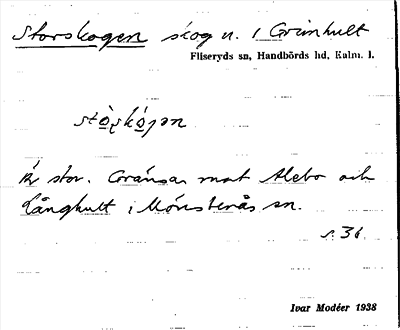 Storskogen skog n. i Grimhult
Fliseryds sn, Handbörds hd, Kalm. l.
stò̱ṣkò̱gən
Är stor. Gränsar mot Alebo och
Långhult i Mönsterås sn.
s. 36.
Ivar Modéer 1938